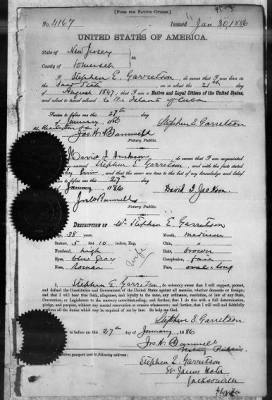 [FORM FOR NATIVE CITIZEN.]
No. 4167 Issued Jan 30, 1886
UNITED STATES OF AMERICA.
State of New Jersey
County of Somerset
I, Stephen E. Garretson, do swear that I was born in the
State, on the 21st day of
August 1847; that I am a Native and Loyal Citizen of the United States,
and about to travel abroad to the Island of Cuba
Sworn to before me this 27th
of January 1886
Stephen E. Garretson
Jos. H. Bammell
I, David I. Jackson, do swear that I am acquainted
with the above named Stephen E. Garretson, and with the facts stated
before me this 27th
January 1886
David I. Jackson
DESCRIPTION OF Stephen E. Garretson
Age: 38 years
Stature: 5 feet 10 inches, Eng.
Forehead: high
Eyes: blue Gray
Nose: Roman
Hair: brown
Complexion: fair
Face: oval & long
I, Stephen E. Garretson, do solemnly swear that I will support, protect,
and defend the Constitution and Government of the United States against all enemies, whether domestic or foreign;
and that I will bear true faith, allegiance, and loyalty to the same, any ordinance, resolution, or law of any State,
Convention, or Legislature to the contrary notwithstanding; and further, that I do this with a full determination,
pledge, and purpose, without any mental reservation or evasion whatsoever; and further, that I will well and faithfully
perform all the duties which may be required of me by law: So help me God.
Stephen E. Garretson
Sworn to before me this 27th day of January 1886
Jos. H. Bammell
Notary Public
Stephen E. Garretson
St. James Hotel
Jacksonville
Florida